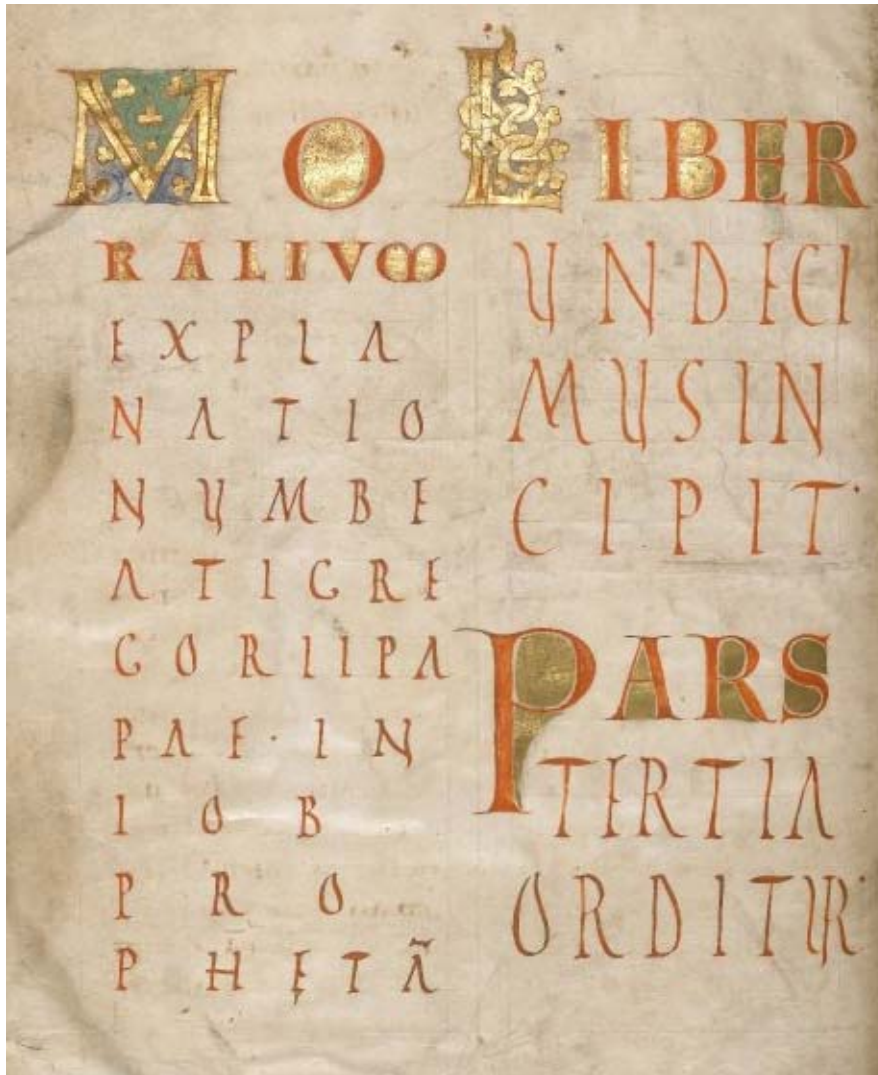 MO
RALIUM
EXPLA
NATIO
NUMBE
ATIGRE
GORIIPA
PAE·IN
IOB
PRO
PHETÃ
LIBER
UNDECI
MUSIN
CIPIT·
PARS
TERTIA
ORDITUR·